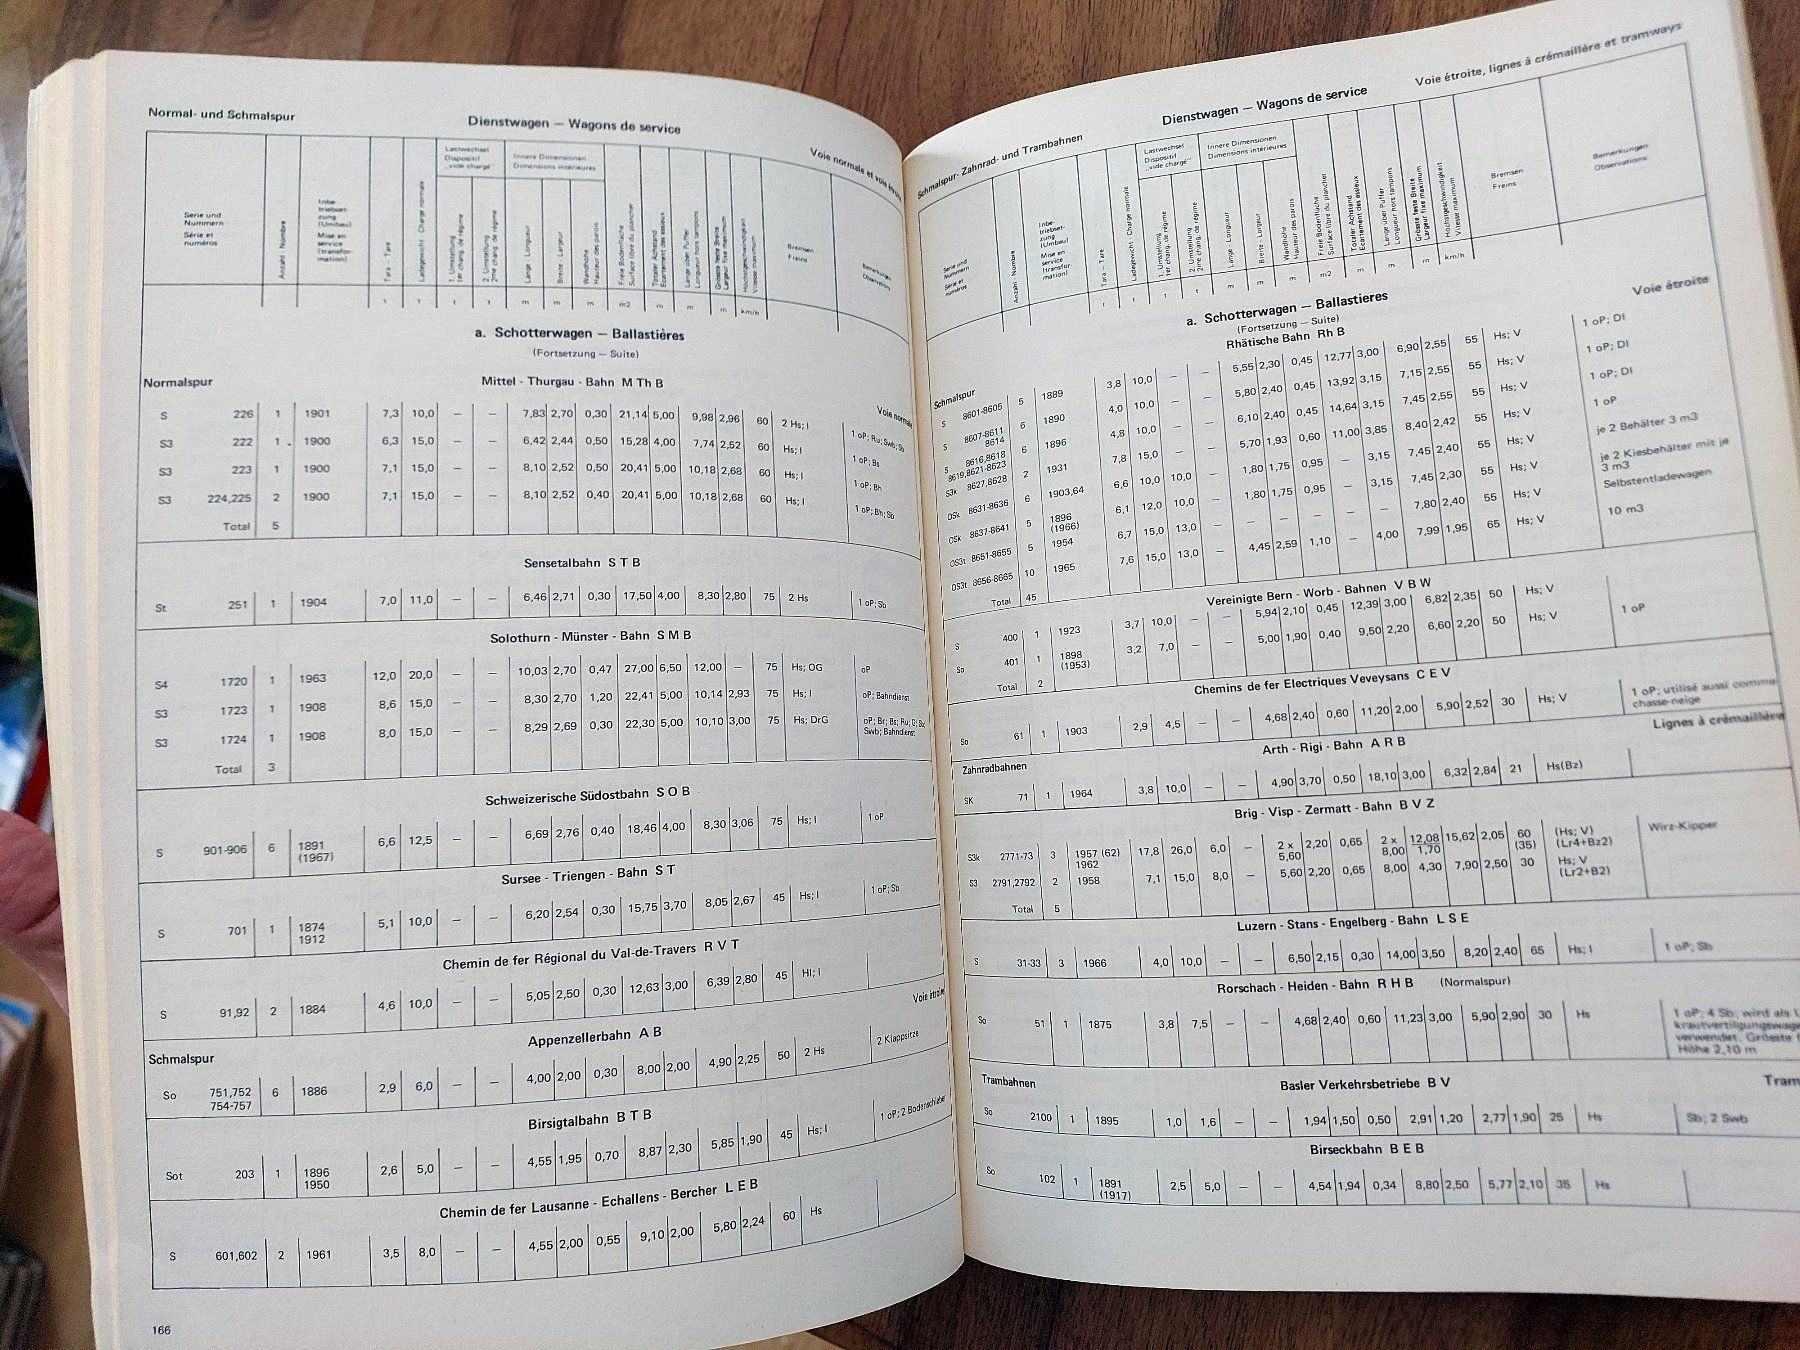 Normal- und Schmalspur
Dienstwagen — Wagons de service
Voie normale et voie étroite
Serie und Nummern Série et numéros
Anzahl · Nombre
Inbe- triebset- zung (Umbau) Mise en service (transfor- mation)
Tara - Tare
Ladegewicht · Charge normale
Lastwechsel Dispositif „vide chargé"
1. Umstellung 1er chang. de régime
2. Umstellung 2me chang. de régime
Innere Dimensionen Dimensions intérieures
Länge · Longueur
Breite · Largeur
Wandhöhe Hauteur des parois
Freie Bodenfläche Surface libre du plancher
Totaler Achstand Ecartement des essieux
Länge über Puffer Longueur hors tampons
Grösste feste Breite Largeur fixe maximum
Höchstgeschwindigkeit Vitesse maximum
Bremsen Freins
Bemerkungen Observations
t t t t m m m m2 m m m km/h
a. Schotterwagen — Ballastières
(Fortsetzung — Suite)
Normalspur
Mittel - Thurgau - Bahn M Th B
Voie normale
S 226 1 1901 7,3 10,0 — — 7,83 2,70 0,30 21,14 5,00 9,98 2,96 60 2 Hs; I 1 oP; Ru; Swb; Sb
S3 222 1 1900 6,3 15,0 — — 6,42 2,44 0,50 15,28 4,00 7,74 2,52 60 Hs; I 1 oP; Bs
S3 223 1 1900 7,1 15,0 — — 8,10 2,52 0,50 20,41 5,00 10,18 2,68 60 Hs; I 1 oP; Bh
S3 224,225 2 1900 7,1 15,0 — — 8,10 2,52 0,40 20,41 5,00 10,18 2,68 60 Hs; I 1 oP; Bh; Sb
Total 5
Sensetalbahn S T B
St 251 1 1904 7,0 11,0 — — 6,46 2,71 0,30 17,50 4,00 8,30 2,80 75 2 Hs 1 oP; Sb
Solothurn - Münster - Bahn S M B
S4 1720 1 1963 12,0 20,0 — — 10,03 2,70 0,47 27,00 6,50 12,00 — 75 Hs; OG oP
S3 1723 1 1908 8,6 15,0 — — 8,30 2,70 1,20 22,41 5,00 10,14 2,93 75 Hs; I oP; Bahndienst
S3 1724 1 1908 8,0 15,0 — — 8,29 2,69 0,30 22,30 5,00 10,10 3,00 75 Hs; DrG oP; Br; Bs; Ru; G;
Swb; Bahndienst
Total 3
Schweizerische Südostbahn S O B
S 901-906 6 1891 6,6 12,5 — — 6,69 2,76 0,40 18,46 4,00 8,30 3,06 75 Hs; I 1 oP
(1967)
Sursee - Triengen - Bahn S T
S 701 1 1874 5,1 10,0 — — 6,20 2,54 0,30 15,75 3,70 8,05 2,67 45 Hs; I 1 oP; Sb
1912
Chemin de fer Régional du Val-de-Travers R V T
S 91,92 2 1884 4,6 10,0 — — 5,05 2,50 0,30 12,63 3,00 6,39 2,80 45 Hl; I
Voie étroite
Schmalspur
Appenzellerbahn A B
So 751,752 6 1886 2,9 6,0 — — 4,00 2,00 0,30 8,00 2,00 4,90 2,25 50 2 Hs 2 Klappsitze
754-757
Birsigtalbahn B T B
Sot 203 1 1896 2,6 5,0 — — 4,55 1,95 0,70 8,87 2,30 5,85 1,90 45 Hs; I 1 oP; 2 Bodenschieber
1950
Chemin de fer Lausanne - Echallens - Bercher L E B
S 601,602 2 1961 3,5 8,0 — — 4,55 2,00 0,55 9,10 2,00 5,80 2,24 60 Hs
166
Schmalspur- Zahnrad- und Trambahnen
Dienstwagen — Wagons de service
Voie étroite, lignes à crémaillère et tramways
Serie und Nummern Série et numéros
Anzahl · Nombre
Inbe- triebset- zung (Umbau) Mise en service (transfor- mation)
Tara - Tare
Ladegewicht · Charge normale
Lastwechsel Dispositif „vide chargé"
1. Umstellung 1er chang. de régime
2. Umstellung 2me chang. de régime
Innere Dimensionen Dimensions intérieures
Länge · Longueur
Breite · Largeur
Wandhöhe Hauteur des parois
Freie Bodenfläche Surface libre du plancher
Totaler Achstand Ecartement des essieux
Länge über Puffer Longueur hors tampons
Grösste feste Breite Largeur fixe maximum
Höchstgeschwindigkeit Vitesse maximum
Bremsen Freins
Bemerkungen Observations
t t t t m m m m2 m m m km/h
a. Schotterwagen — Ballastières
(Fortsetzung — Suite)
Voie étroite
Schmalspur
Rhätische Bahn Rh B
S 8601-8605 5 1889 3,8 10,0 — — 5,55 2,30 0,45 12,77 3,00 6,90 2,55 55 Hs; V 1 oP; Dl
S 8607-8611 6 1890 4,0 10,0 — — 5,80 2,40 0,45 13,92 3,15 7,15 2,55 55 Hs; V 1 oP; Dl
8614
S 8616,8618 6 1896 4,8 10,0 — — 6,10 2,40 0,45 14,64 3,15 7,45 2,55 55 Hs; V 1 oP; Dl
8619,8621-8623
S3k 8627,8628 2 1931 7,8 15,0 — — 5,70 1,93 0,60 11,00 3,85 8,40 2,42 55 Hs; V 1 oP
OSk 8631-8636 6 1903,64 6,6 10,0 10,0 — 1,80 1,75 0,95 — 3,15 7,45 2,40 55 Hs; V je 2 Behälter 3 m3
OSk 8637-8641 5 1896 6,1 12,0 10,0 — 1,80 1,75 0,95 — 3,15 7,45 2,30 55 Hs; V je 2 Kiesbehälter mit je
(1966) 3 m3
OS3t 8651-8655 5 1954 6,7 15,0 13,0 — — — — — — 7,80 2,40 55 Hs; V Selbstentladewagen
OS3t 8656-8665 10 1965 7,6 15,0 13,0 — 4,45 2,59 1,10 — 4,00 7,99 1,95 65 Hs; V 10 m3
Total 45
Vereinigte Bern - Worb - Bahnen V B W
S 400 1 1923 3,7 10,0 — — 5,94 2,10 0,45 12,39 3,00 6,82 2,35 50 Hs; V
So 401 1 1898 3,2 7,0 — — 5,00 1,90 0,40 9,50 2,20 6,60 2,20 50 Hs; V 1 oP
(1953)
Total 2
Chemins de fer Electriques Veveysans C E V
So 61 1 1903 2,9 4,5 — — 4,68 2,40 0,60 11,20 2,00 5,90 2,52 30 Hs; V 1 oP; utilisé aussi comme
chasse-neige
Lignes à crémaillère
Zahnradbahnen
Arth - Rigi - Bahn A R B
SK 71 1 1964 3,8 10,0 — — 4,90 3,70 0,50 18,10 3,00 6,32 2,84 21 Hs(Bz)
Brig - Visp - Zermatt - Bahn B V Z
S3k 2771-73 3 1957 (62) 17,8 26,0 6,0 — 2 x 2,20 0,65 2 x 12,08 15,62 2,05 60 (Hs; V) Wirz-Kipper
1962 5,60 8,00 1,70 (35) (Lr4+Bz2)
S3 2791,2792 2 1958 7,1 15,0 8,0 — 5,60 2,20 0,65 8,00 4,30 7,90 2,50 30 Hs; V
(Lr2+B2)
Total 5
Luzern - Stans - Engelberg - Bahn L S E
S 31-33 3 1966 4,0 10,0 — — 6,50 2,15 0,30 14,00 3,50 8,20 2,40 65 Hs; I 1 oP; Sb
Rorschach - Heiden - Bahn R H B (Normalspur)
So 51 1 1875 3,8 7,5 — — 4,68 2,40 0,60 11,23 3,00 5,90 2,90 30 Hs 1 oP; 4 Sb; wird als
krautvertilgungswage
verwendet. Grösste
Höhe 2,10 m
Trambahnen
Basler Verkehrsbetriebe B V
Tram
So 2100 1 1895 1,0 1,6 — — 1,94 1,50 0,50 2,91 1,20 2,77 1,90 25 Hs Sb; 2 Swb
Birseckbahn B E B
So 102 1 1891 2,5 5,0 — — 4,54 1,94 0,34 8,80 2,50 5,77 2,10 35 Hs
(1917)